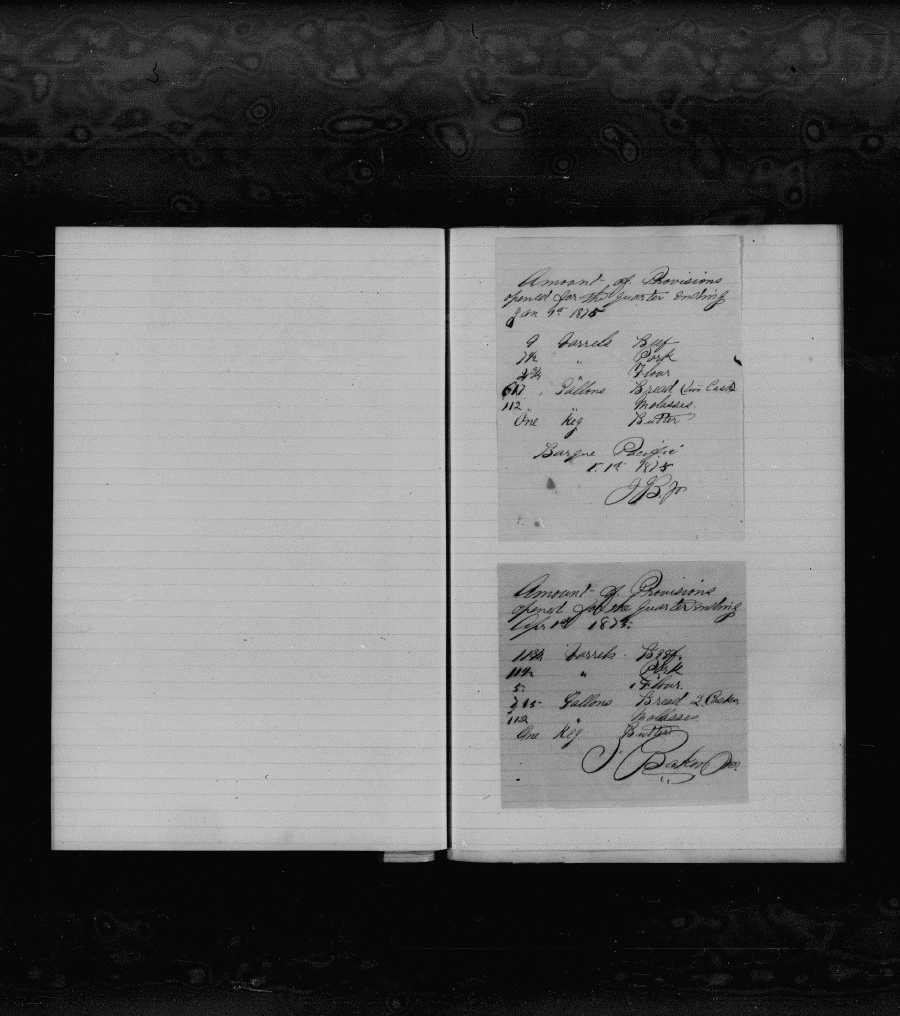 Amount of Provisions
opened for the quarter ending
Jan 1875
9 Barrels Beef
" Pork
Flour
Gallons Bread (Two Casks
112 " Molasses.
One Keg Butter
Barque Pacific
1st 1875
J B. Jr
Amount of Provisions
opened for the quarter ending
Apr 1st 1875.
Barrels. Beef.
" Pork
5. " Flour.
Gallons Bread 2 Casks
112 " Molasses
One Keg Butter
J. Baker